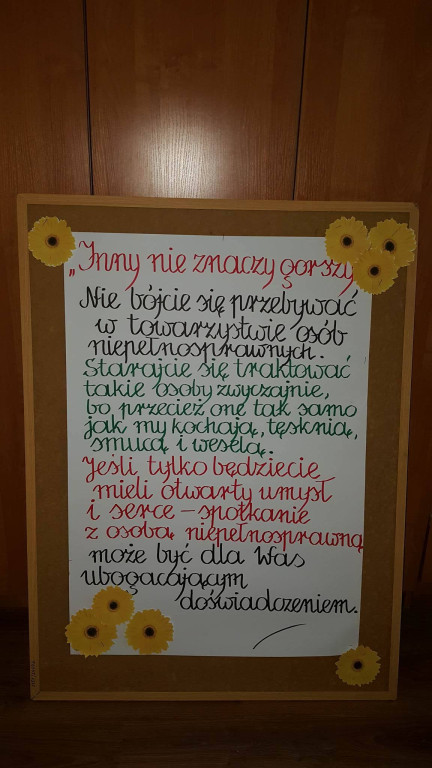 „Inny nie znaczy gorszy
Nie bójcie się przebywać
w towarzystwie osób
niepełnosprawnych.
Starajcie się traktować
takie osoby zwyczajnie,
bo przecież one tak samo
jak my kochają, tęsknią,
smucą i weselą.
Jeśli tylko będziecie
mieli otwarty umysł
i serce – spotkanie
z osobą niepełnosprawną
może być dla Was
ubogacającym
doświadczeniem.